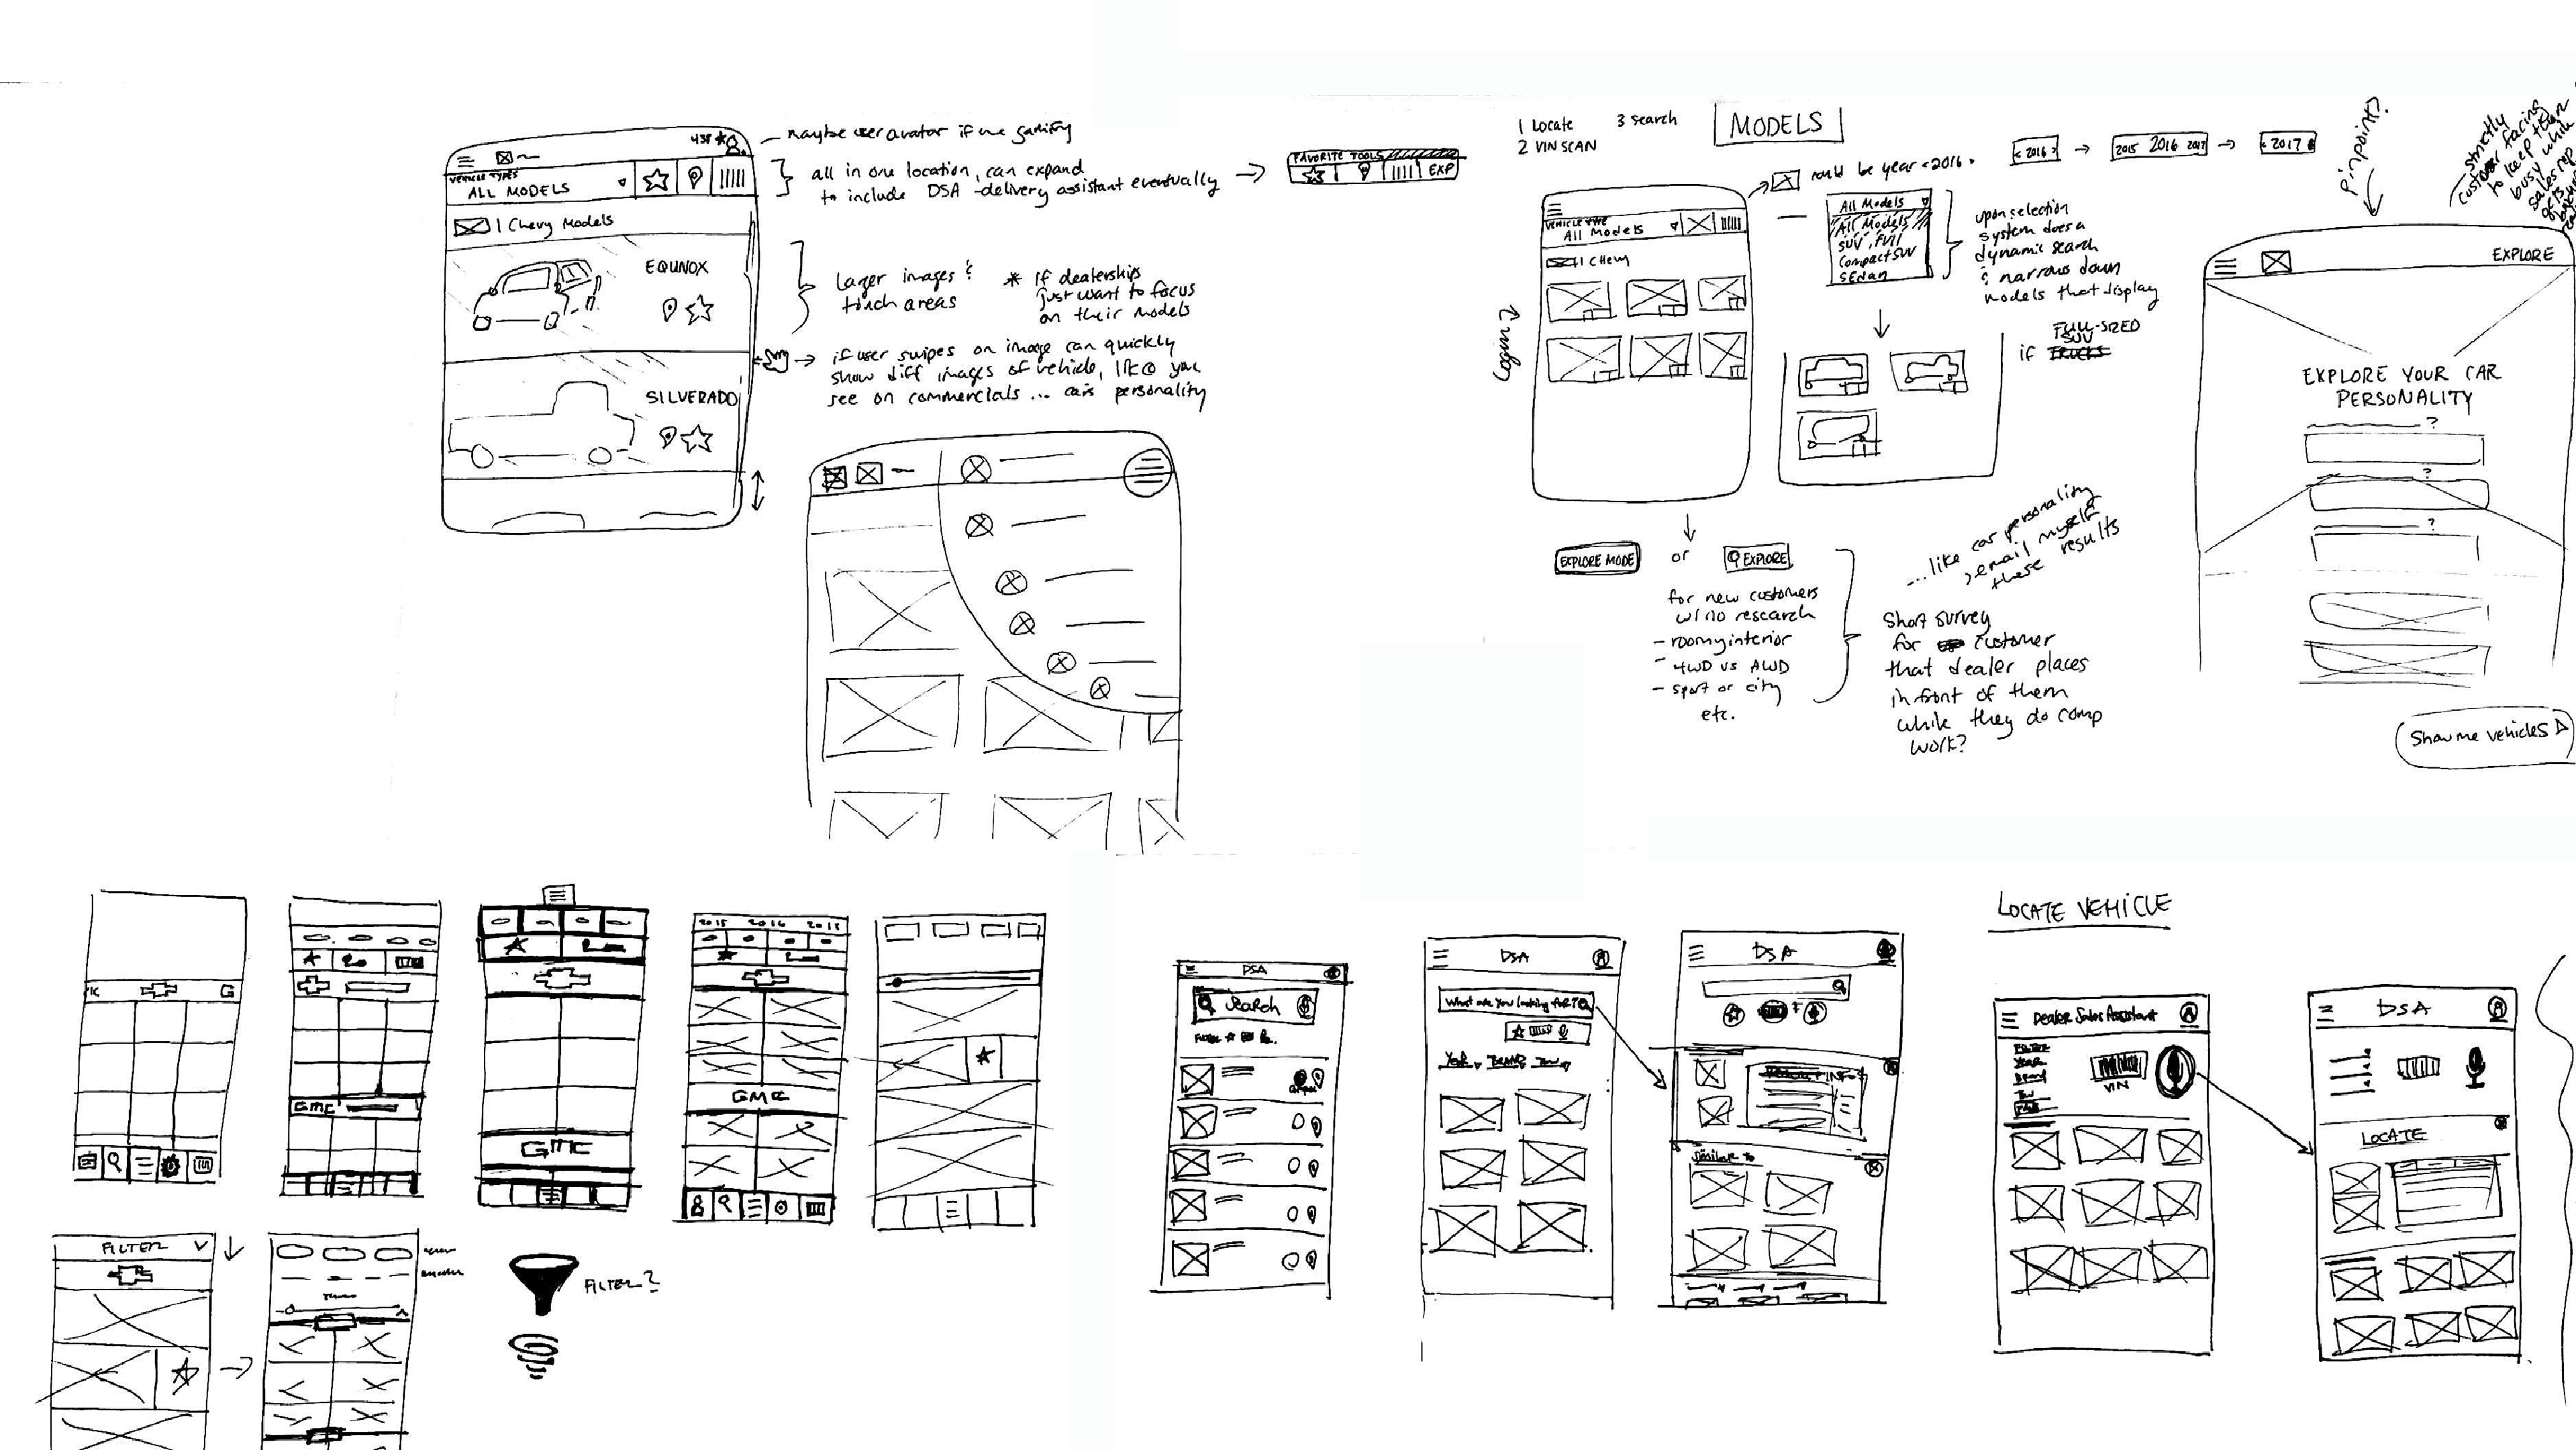 438
maybe user avator if we gamify
VEHICLE TYPES
ALL MODELS
1 Chevy Models
EQUNOX
SILVERADO
all in one location, can expand
to include DSA - delivery assistant eventually
FAVORITE TOOLS
EXP
Larger images &
touch areas
* If dealerships
just want to focus
on their models
if user swipes on image can quickly
show diff images of vehicle, like you
see on commercials ... car's personality
1 Locate
2 VIN SCAN
3 search
MODELS
could be year <2016>
<2016>
2015 2016 2017
<2017
Login
VEHICLE TYPE
All Models
1 CHEVY
All Models
All Models
SUV, Full
Compact SUV
SEdan
upon selection
system does a
dynamic search
& narrows down
models that display
if
FULL-SIZED
SUV
TRUCKS
EXPLORE MODE
or
EXPLORE
for new customers
w/ no research
- roomy interior
- 4WD vs AWD
- sport or city
etc.
...like car personality
email myself
these results
Short survey
for customer
that dealer places
in front of them
while they do comp
work?
pinpoint?
strictly
customer facing
to keep them
busy while
sales rep
gets
EXPLORE
EXPLORE YOUR CAR
PERSONALITY
?
?
?
Show me vehicles
G
GMC
GMC
2015 2016
GMC
FILTER
FILTER?
DSA
Search
FILTER
DSA
What are you looking for?
Year, BRAND,
DSA
Similar to
LOCATE VEHICLE
Dealer Sales Assistant
FILTER
Year
Brand
VIN
DSA
LOCATE